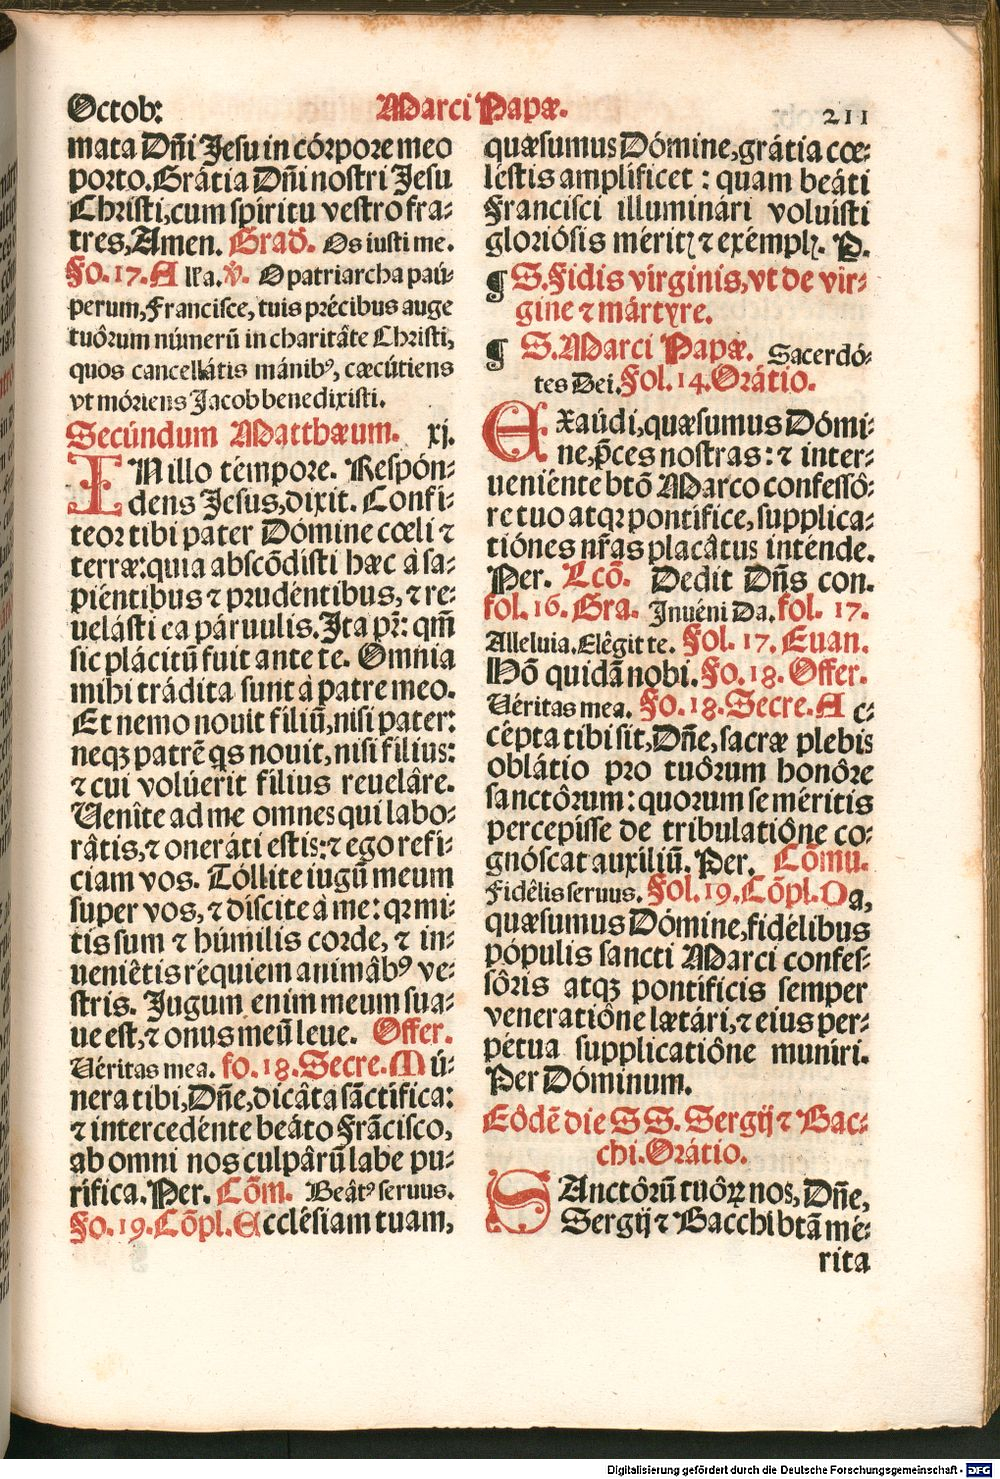 Octob: Marci Papæ. 211
mata Dñi Jesu in córpore meo
porto. Grâtia Dñi nostri Jesu
Christi, cum spíritu vestro fra-
tres, Amen. Grad. Os iusti me.
Fo. 17. Alla. ỹ. O patriarcha paú-
perum, Francisce, tuis précibus auge
tuôrum númerũ in charitâte Christi,
quos cancellátis mánibꝰ, cæcútiens
vt móriens Jacob benedixisti.
Secúndum Matthæum. xj.
IN illo témpore. Respón-
dens Jesus, dixit. Confi-
teor tibi pater Dómine cœli ⁊
terræ: quia abscõdisti hæc à sa-
piéntibus ⁊ prudéntibus, ⁊ re-
uelásti ea páruulis. Ita pr̃: qm̃
sic plácitũ fuit ante te. Omnia
mihi trádita sunt à patre meo.
Et nemo nouit filiũ, nisi pater:
neqꝫ patrẽ qs nouit, nisi filius:
⁊ cui volúerit filius reuelâre.
Uenîte ad me omnes qui labo-
râtis, ⁊ oneráti estis: ⁊ ego refi-
ciam vos. Tóllite iugũ meum
super vos, ⁊ discite à me: qꝛ mi-
tis sum ⁊ húmilis corde, ⁊ in-
ueniêtis réquiem animâbꝰ ve-
stris. Jugum enim meum sua-
ue est, ⁊ onus meũ leue. Offer.
Véritas mea. fo. 18. Secre. Mú-
nera tibi, Dñe, dicâta sãctífica:
⁊ intercedénte beáto Frãcisco,
ab omni nos culpârũ labe pu-
rífica. Per. Cõm. Beâtꝰ seruus.
Fo. 19. Cõpl. Ecclésiam tuam,
quæsumus Dómine, grátia cœ-
léstis amplíficet: quam beáti
Francisci illuminári voluísti
gloriósis méritꝭ ⁊ exémplꝭ. P.
¶ S. Fidis vírginis, vt de vír-
gine ⁊ mártyre.
¶ S. Marci Papæ. Sacerdó-
tes Dei. Fol. 14. Orátio.
EXaúdi, quæsumus Dómi-
ne, p̃ces nostras: ⁊ inter-
ueniénte btõ Marco confessô-
re tuo atqꝫ pontífice, supplica-
tiónes nr̃as placâtus inténde.
Per. Lcõ. Dedit Dñs con.
fol. 16. Gra. Inuéni Da. fol. 17.
Alleluia. Elêgit te. Fol. 17. Euan.
Hõ quidã nobi. Fo. 18. Offer.
Véritas mea. Fo. 18. Secre. Ac-
cépta tibi sit, Dñe, sacræ plebis
oblátio pro tuôrum honôre
sanctôrum: quorum se méritis
percepísse de tribulatiône co-
gnóscat auxíliũ. Per. Cõmu.
Fidêlis seruus. Fol. 19. Cõpl. Da,
quæsumus Dómine, fidélibus
pópulis sancti Marci confes-
sôris atqꝫ pontíficis semper
veneratiône lætári, ⁊ eius per-
pétua supplicatiône muníri.
Per Dóminum.
Eôdẽ die SS. Sergij ⁊ Bac-
chi. Orátio.
SAnctôrũ tuôꝝ nos, Dñe,
Sergij ⁊ Bacchi btã mé-
rita
Digitalisierung gefördert durch die Deutsche Forschungsgemeinschaft - DFG